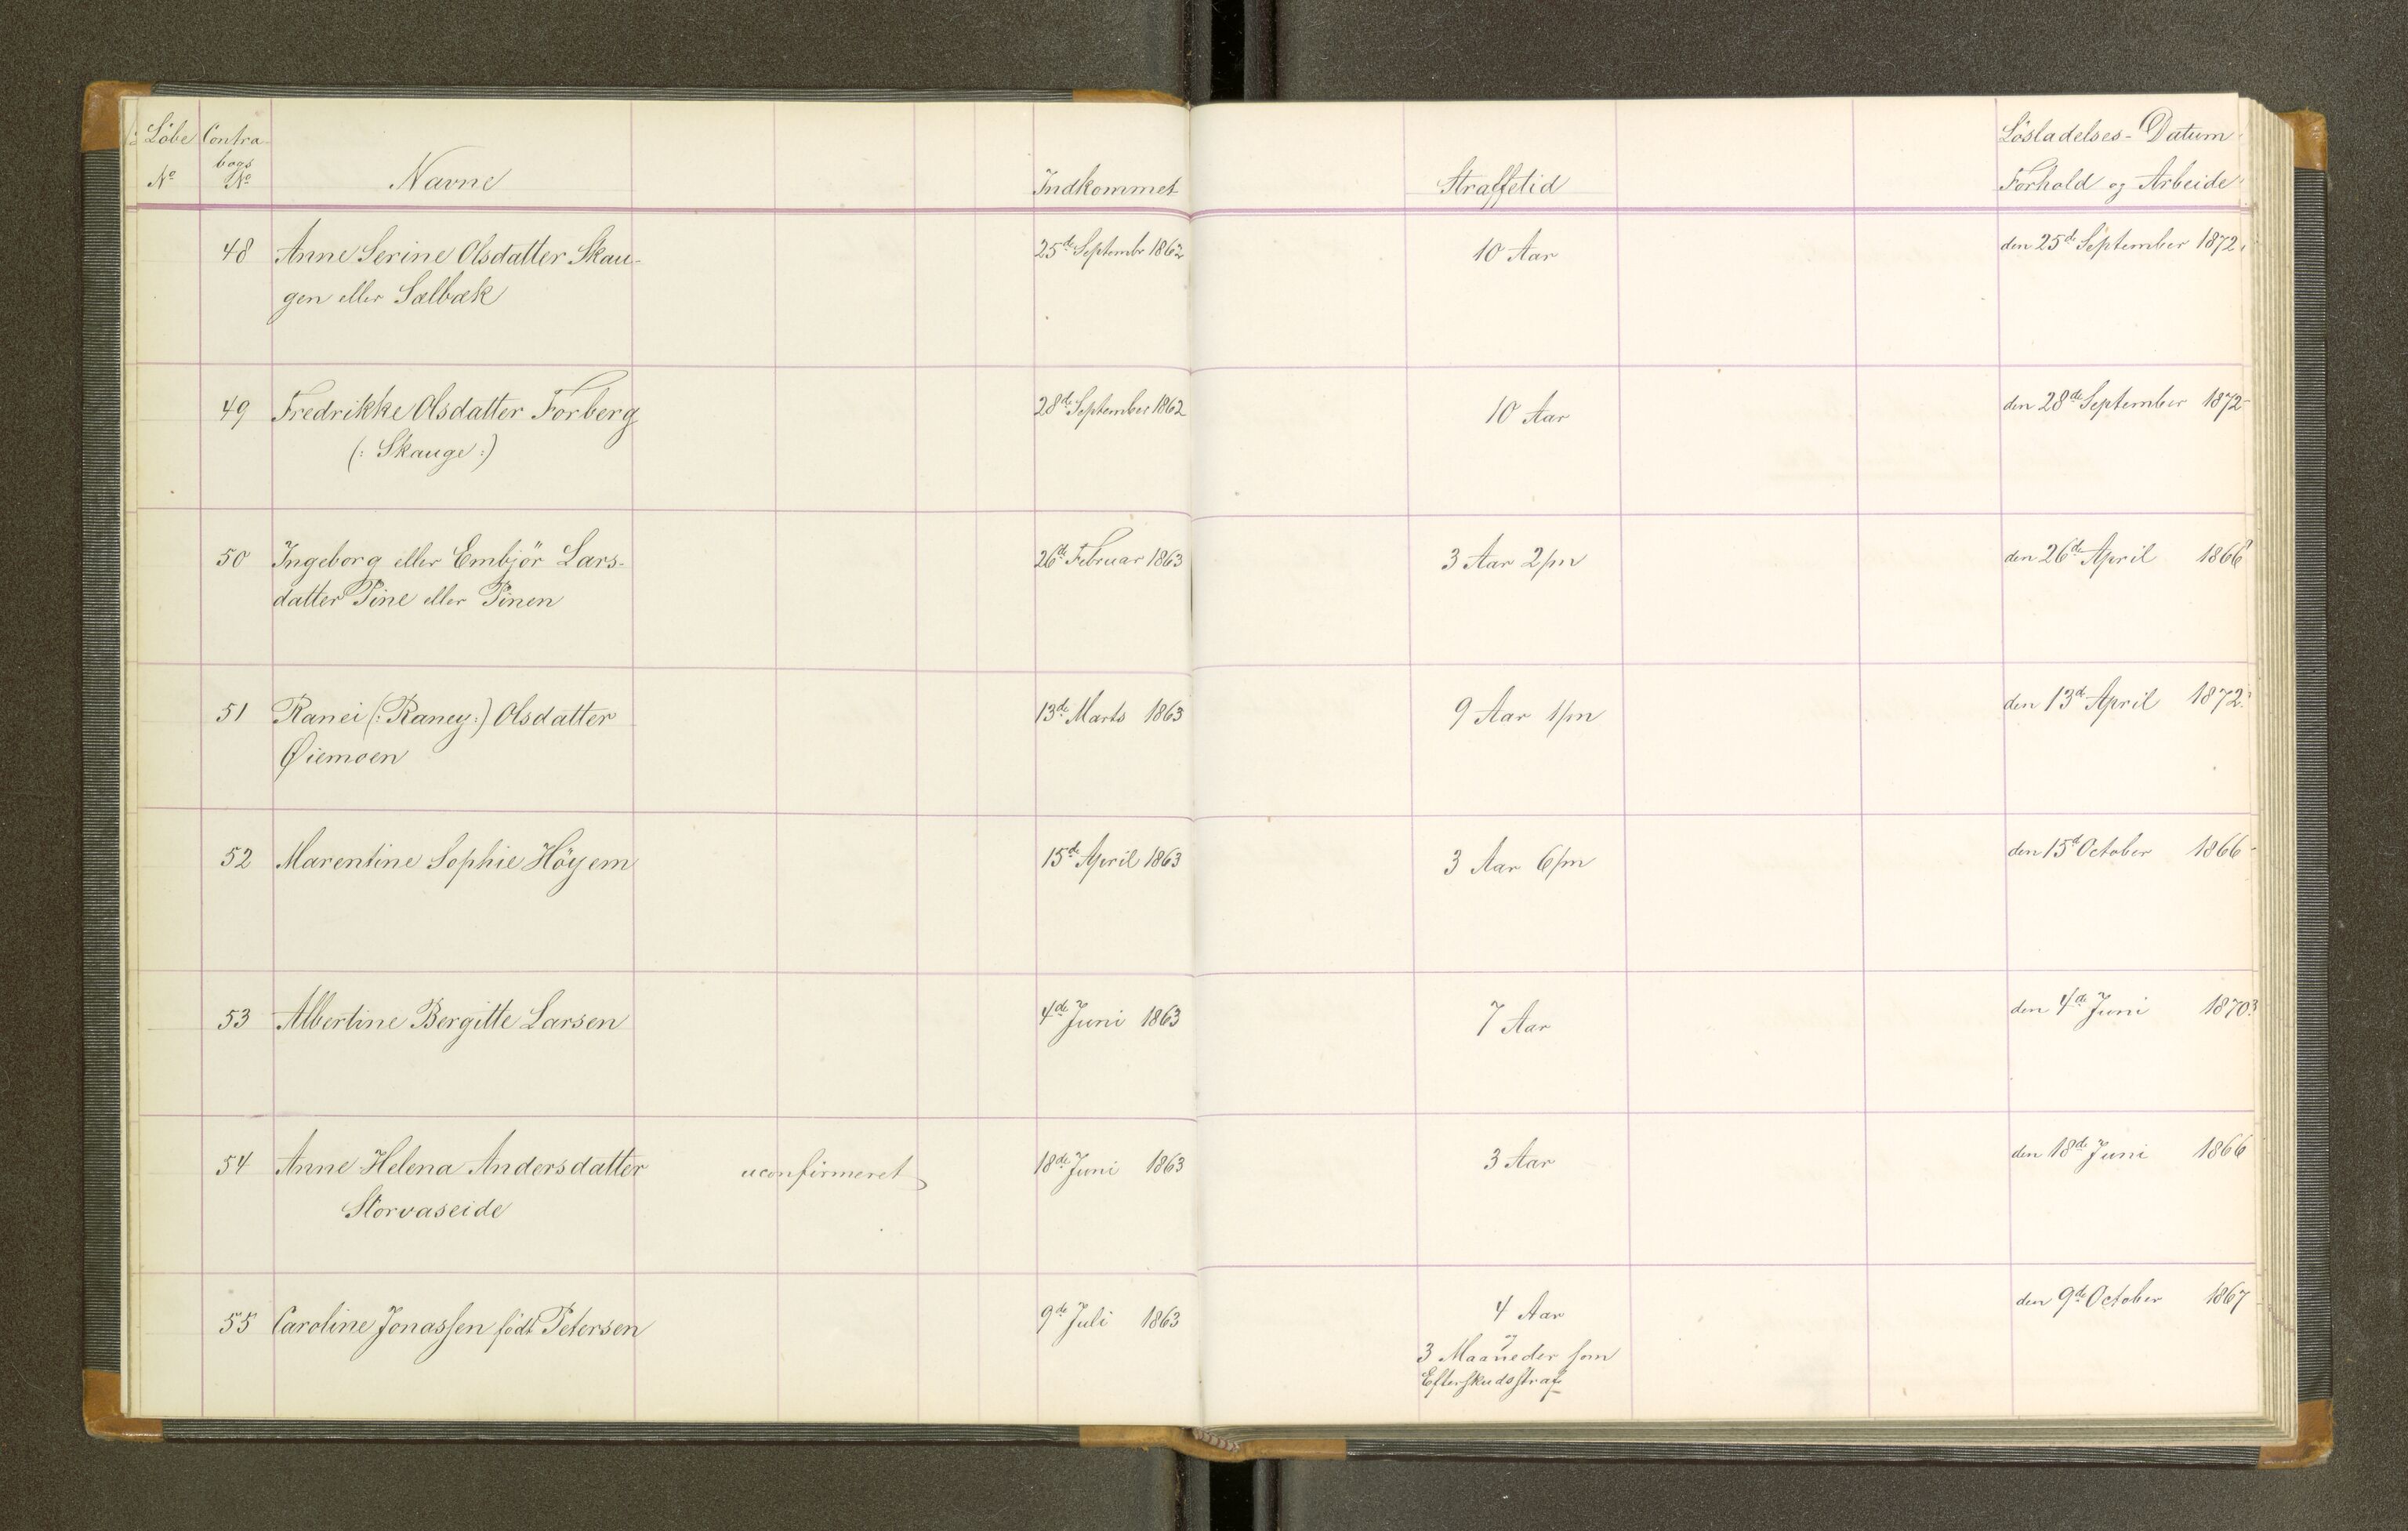 Löbe Contra- Löslades- Datum
bogs
No No Navne Indkommet Straffetid Forhold og Arbeide
48 Anne Serine Olsdatter Skau- 25de Septembr 1862 10 Aar den 25de September 1872
gen eller Sælbæk
49 Fredrikke Olsdatter Forberg 28de September 1862 10 Aar den 28de September 1872
(: Skauge :)
50 Ingeborg eller Embjör Lars- 26de Februar 1863 3 Aar 2/m den 26de April 1866
datter Pine eller Pinen
51 Ranei (: Raney :) Olsdatter 13de Marts 1863 9 Aar 1/m den 13de April 1872
Øiemoen
52 Marentine Sophie Höyem 15de April 1863 3 Aar 6/m den 15de October 1866
53 Albertine Bergitte Larsen 4de Juni 1863 7 Aar den 4de Juni 1870
54 Anne Helena Andersdatter uconfirmeret 18de Juni 1863 3 Aar den 18de Juni 1866
Storvaseide
55 Caroline Jonassen födt Petersen 9de Juli 1863 4 Aar den 9de October 1867
3 Maaneder som
Efterskudsstraf